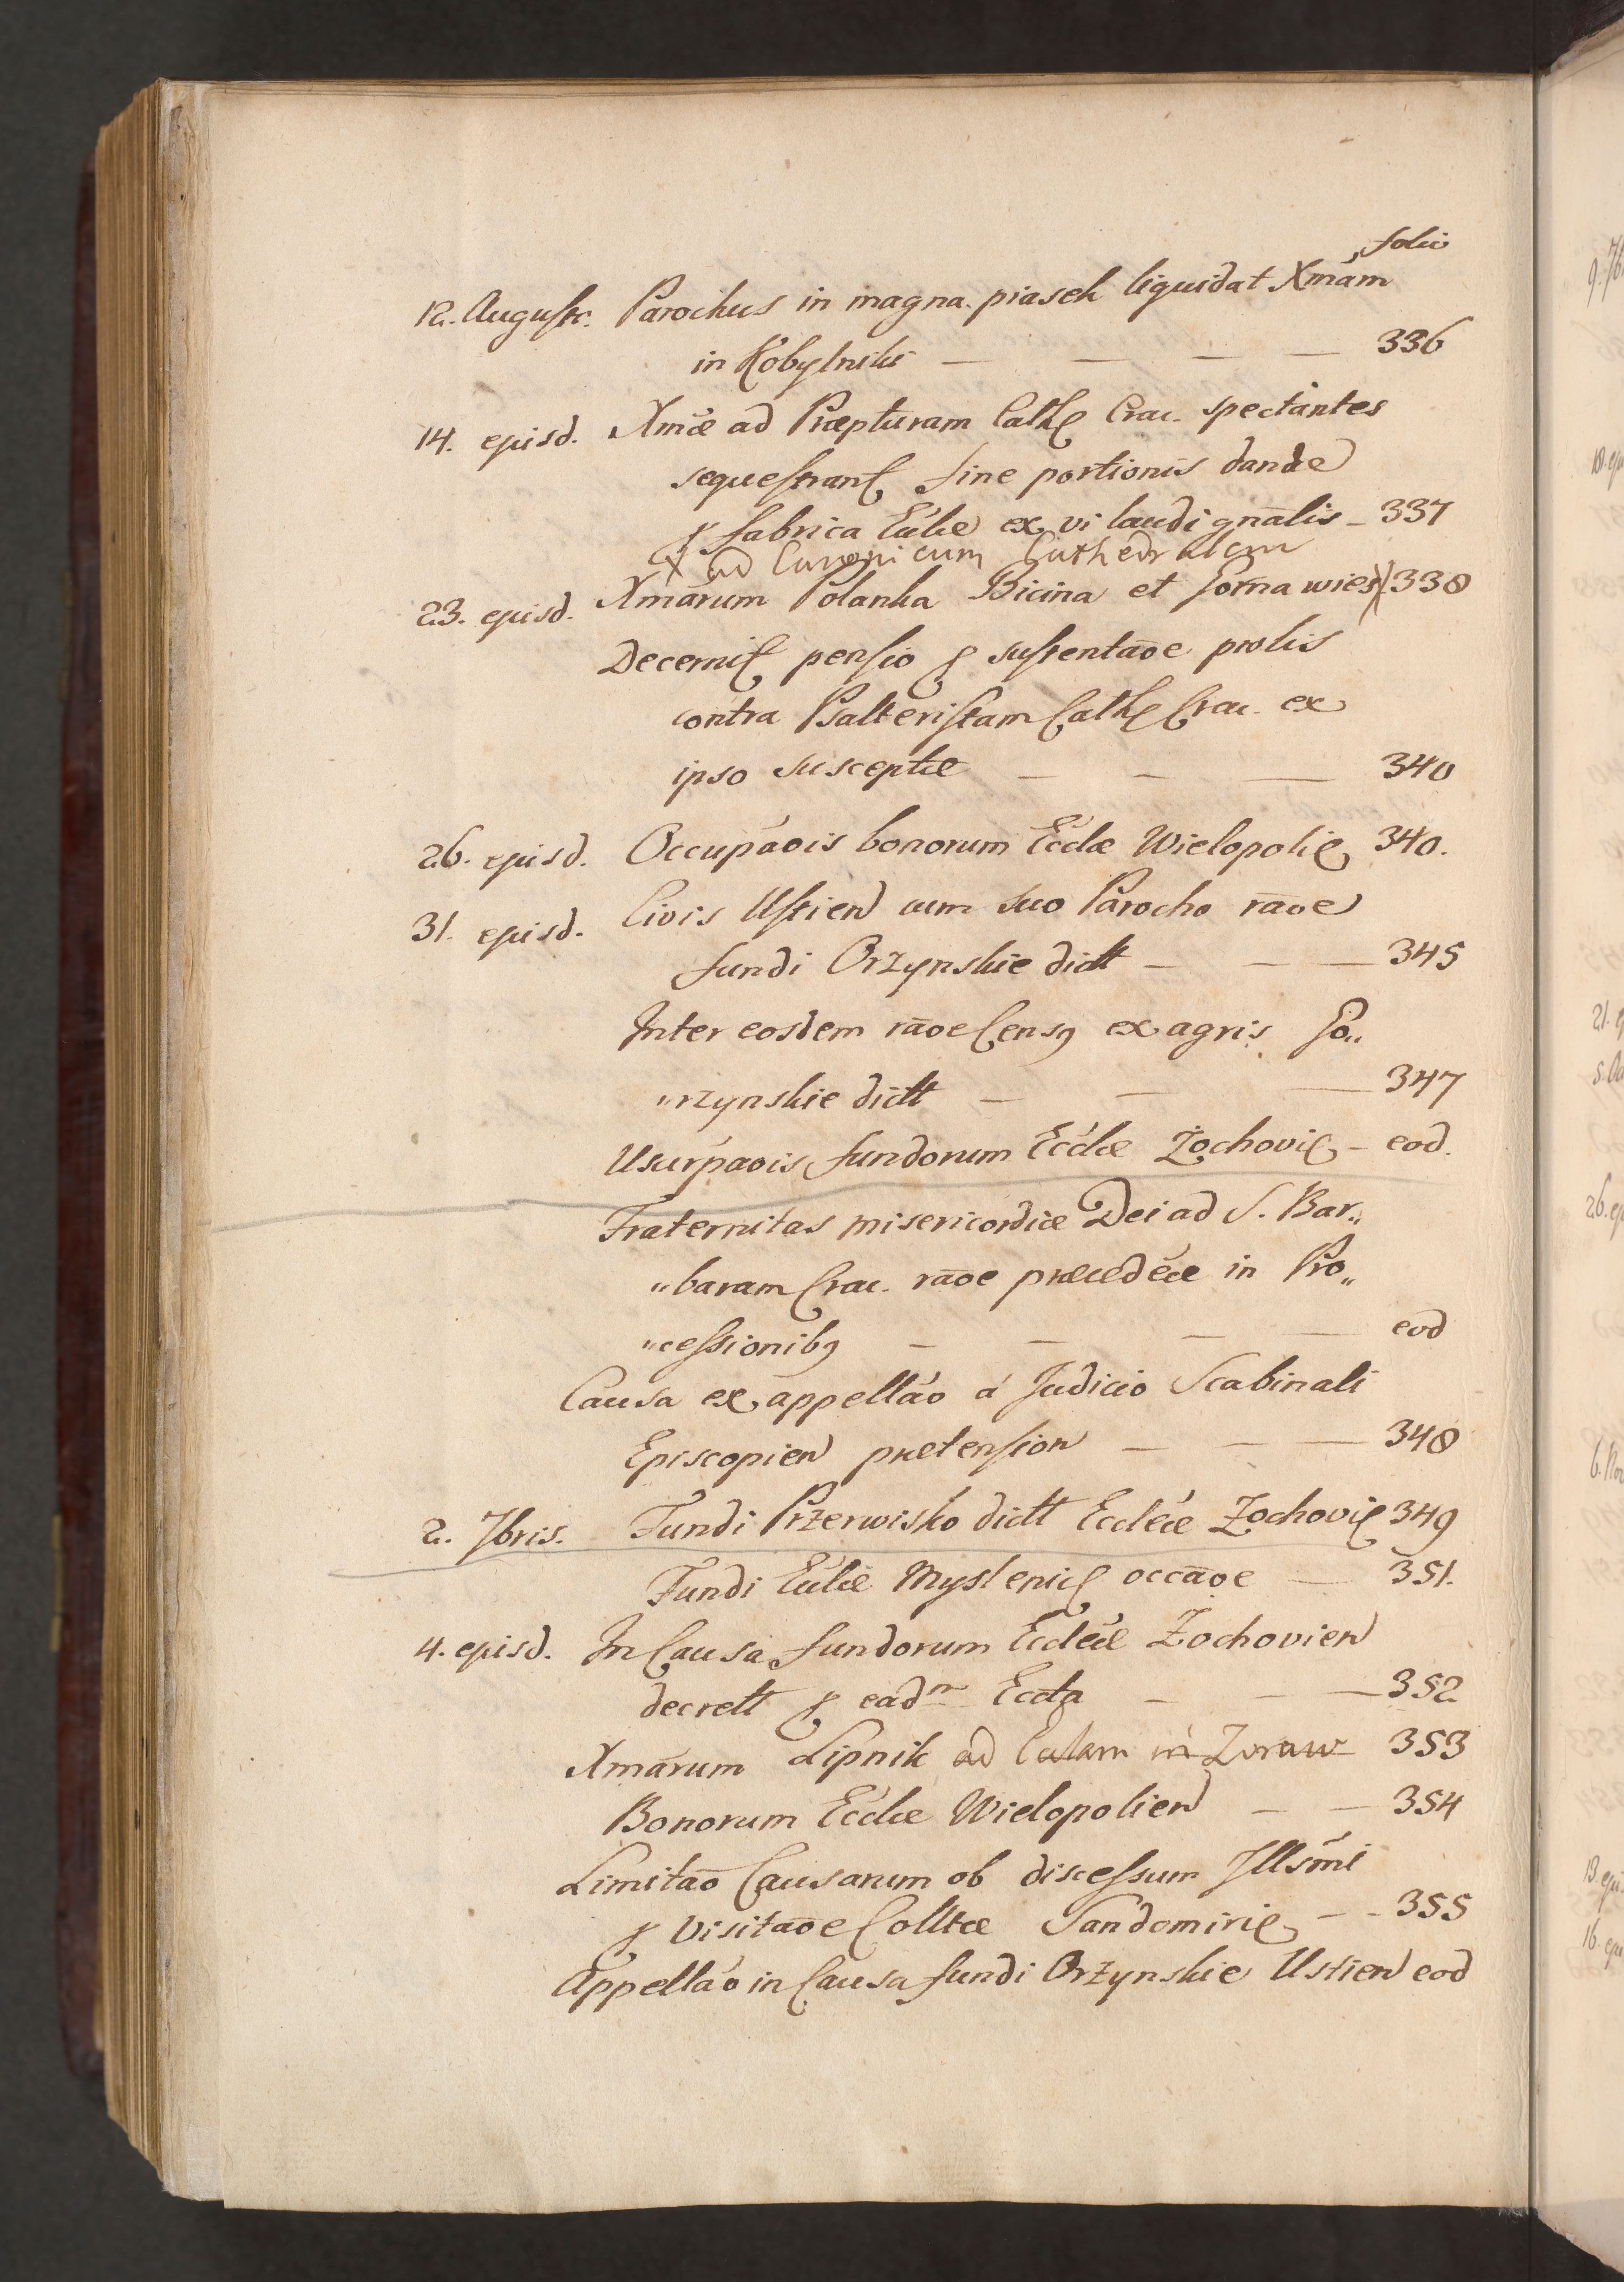 folio
12. Augusti. Parochus in magna piasek liquidat Xmám
in Kobylniki — — — — 336
14. ejusd. Xmæ ad Præpturam Cathę Crac. spectantes
sequestranť sine portionis dandæ
ꝑ fabrica Ecclæ ex vi laudi gnālis – 337
X ad Canonicum Cathedralem
23. ejusd. Xmārum Polanka Bicina et Gorna wies X 338
Decerniť pensio ꝑ sustentāōe prolis
contra Psalteristam Cathę Crac. ex
ipso susceptæ — — — 340
26. ejusd. Occupáōis bonorum Ecclæ Wielopolię 340.
31. ejusd. Civis Ustien cum suo Parocho rāōe
fundi Orzynskie dictt — — — 345
Inter eosdem rāōe Censꝯ ex agris Go„
„rzynskie dictt — — — 347
Usurpáōis fundorum Ecclæ Żochovię – eod.
Fraternitas misericordiæ Dei ad S. Bar„
„baram Crac. rāōe præcedéæ in Pro„
„cessionibꝯ — — — — eod
Causa ex appelláō á Judicio Scabinali
Episcopien prætension — — — 348
2. 7bris. Fundi Przerwisko dictt Eccleæ Żochovię 349
Fundi Ecclæ Myslenicę occāōe — 351.
4. ejusd. In Causa fundorum Ecclæ Żochovien
decrett ꝑ eadm Eccla — — — 352
Xmārum Lipnik ad Eccłam in Zoraw 353
Bonorum Ecclæ Wielopolien — — 354
Limitāō Causarum ob discessum Illsmi
ꝑ visitāōe Colltæ Sandomirię – – 355
Appelláō in Causa fundi Orzynskie Ustien eod